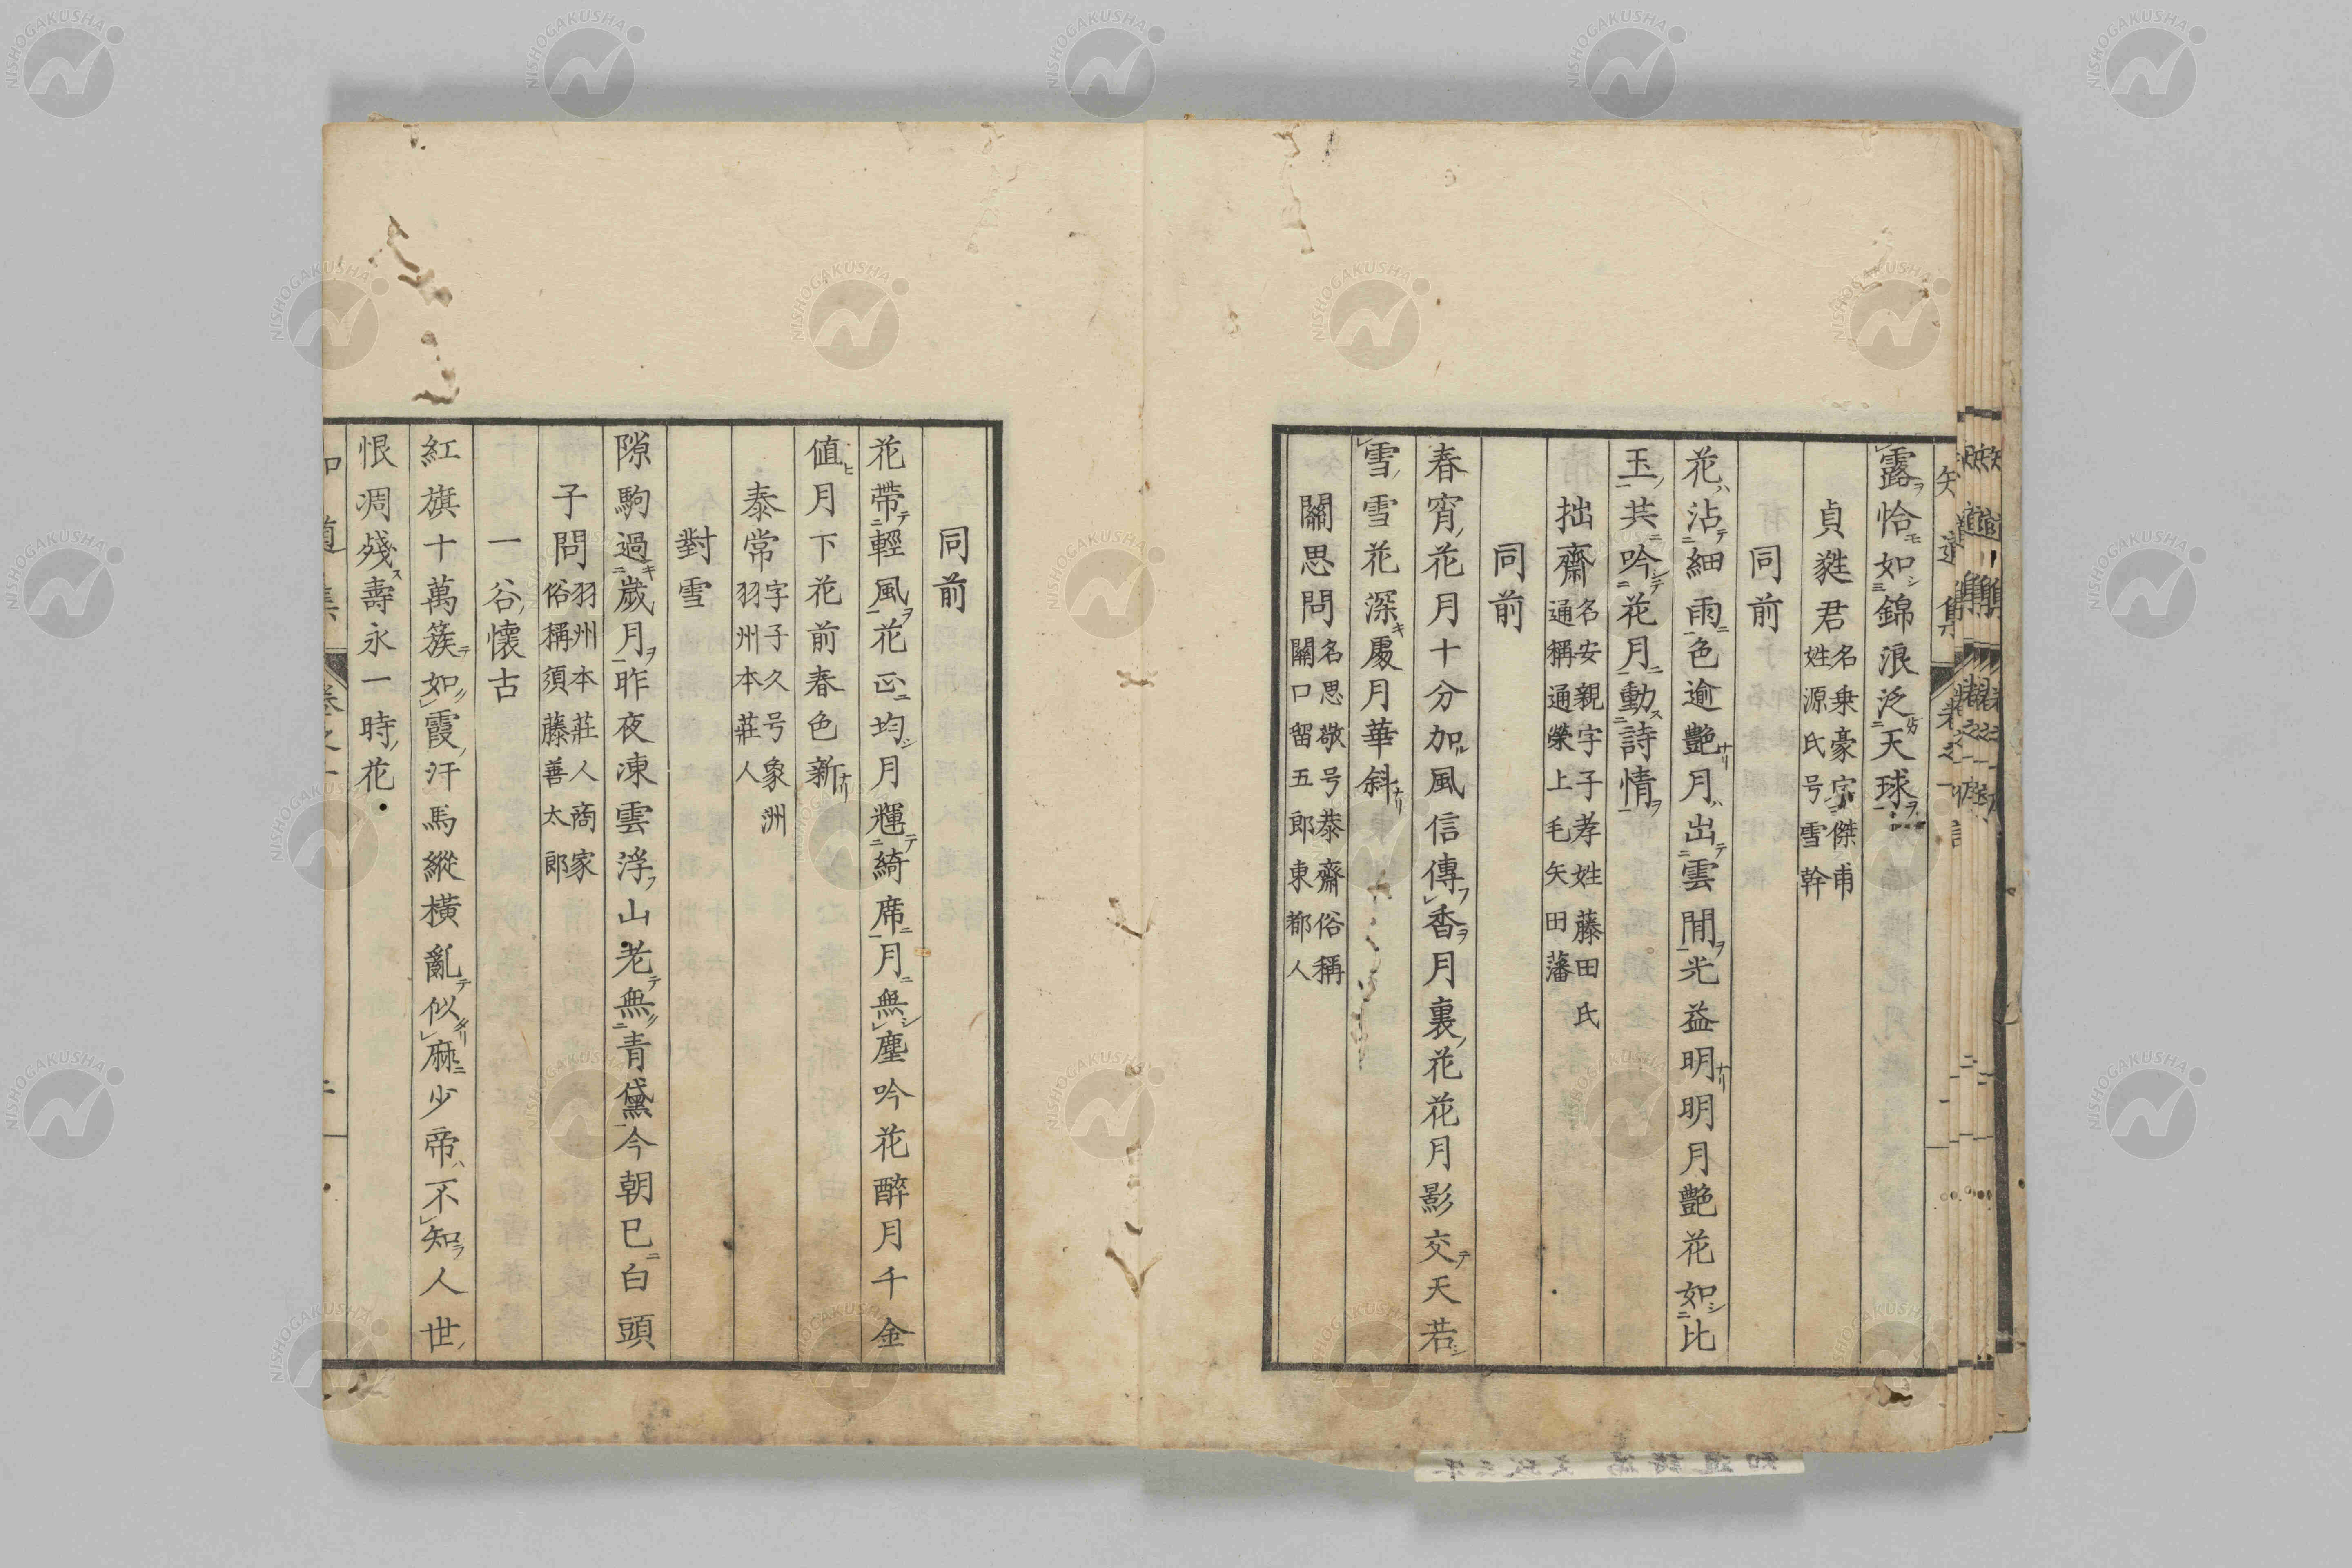 露恰如錦浪泛天球
貞蕤君名乗豪字傑甫姓源氏号雪幹
同前
花沾細雨色逾艶月出雲間光益明明月艶花如比
玉共吟花月動詩情
拙齋名安親字子孝姓藤田氏通稱通榮上毛矢田藩
同前
春宵花月十分加風信傳香月裏花花月影交天若
雪雪花深處月華斜
關思問名思敬号恭齋俗稱關口留五郎東都人
同前
花帶輕風花正均月輝綺席月無塵吟花醉月千金
値月下花前春色新
泰常字子久号象洲羽州本莊人
對雪
隙駒過歳月昨夜凍雲浮山老無青黛今朝已白頭
子問羽州本莊人商家俗稱須藤善太郎
一谷懷古
紅旗十萬簇如霞汗馬縱横亂似麻少帝不知人世
恨凋殘壽永一時花
NISHOGAKUSHA